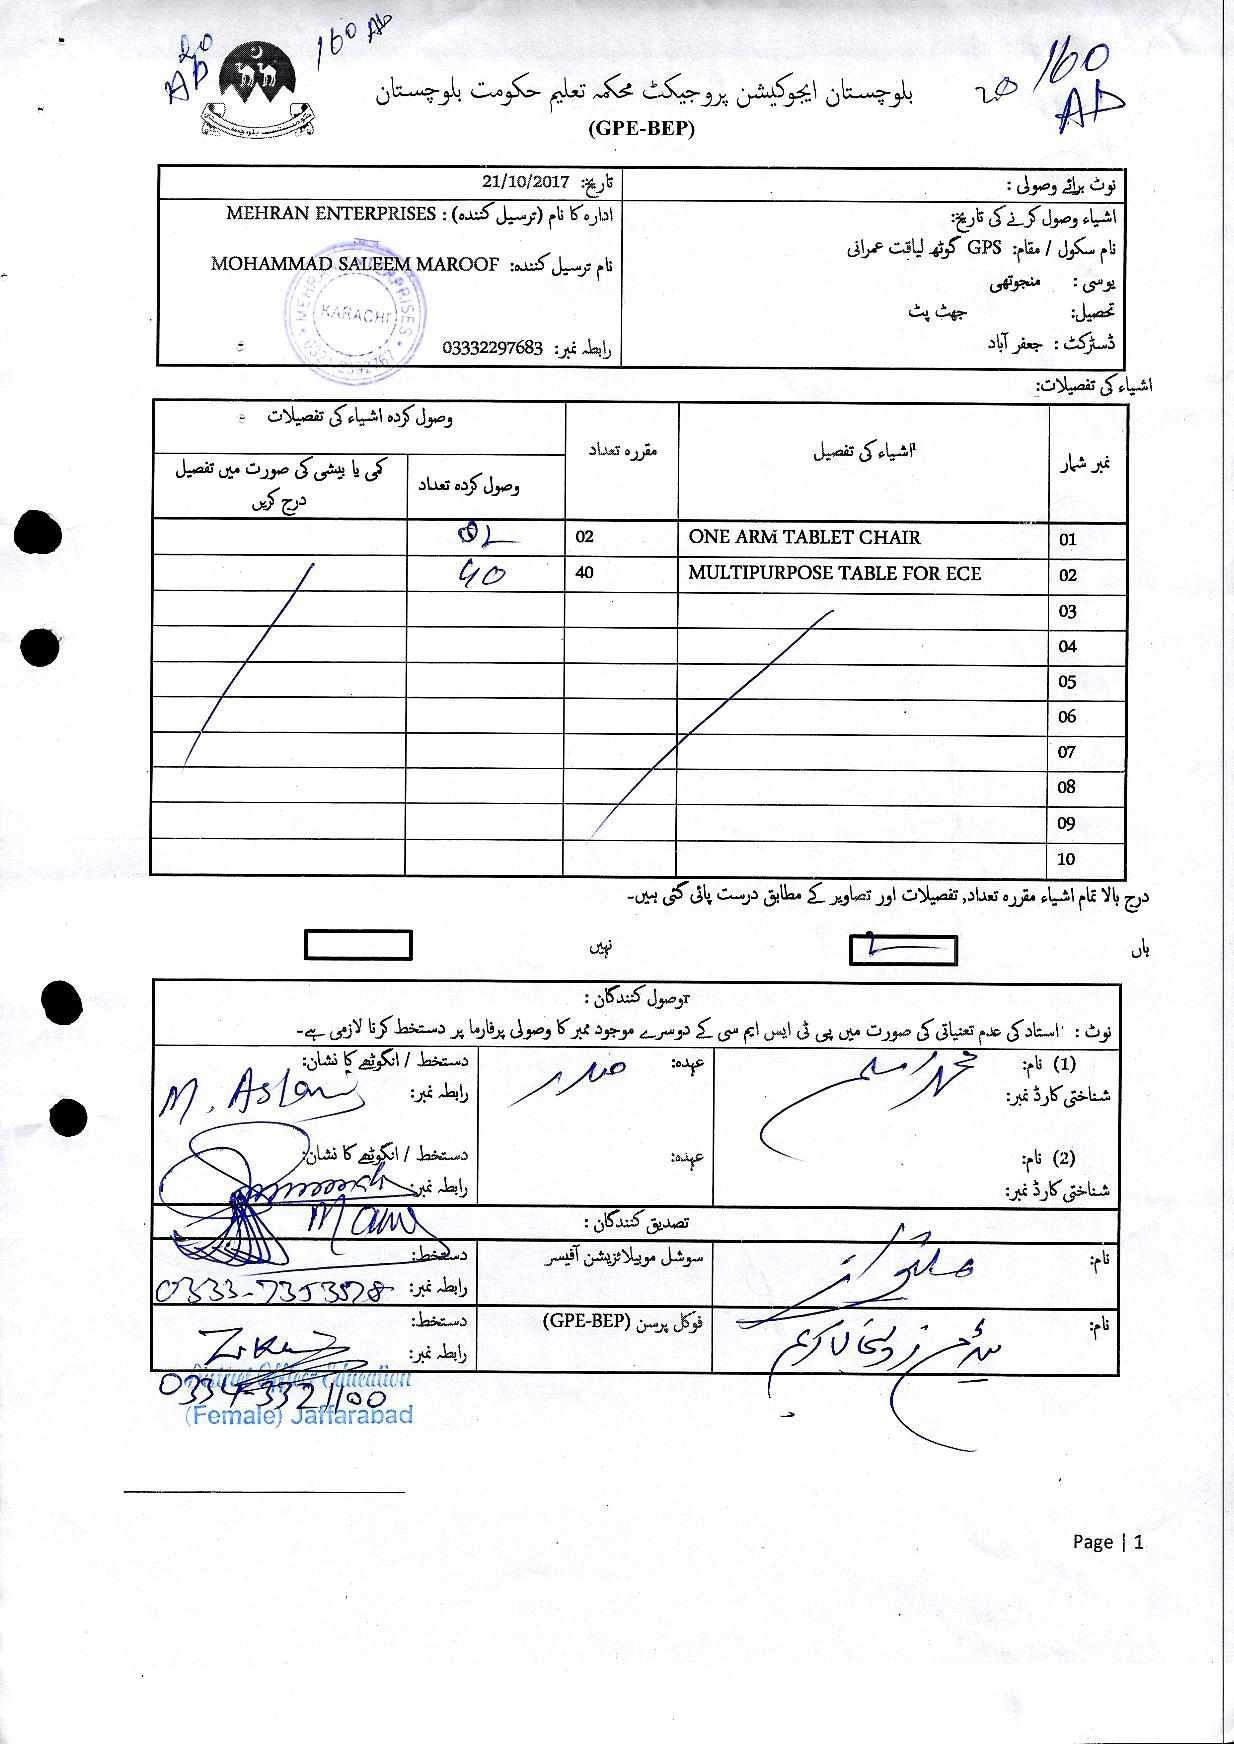 20 AD
160 AD
20 160 AD
بلوچستان ایجوکیشن پروجیکٹ محکمہ تعلیم حکومت بلوچستان
(GPE-BEP)
نوٹ برائے وصولی :
تاریخ: 21/10/2017
اشیاء وصول کرنے کی تاریخ:
نام سکول / مقام: GPS گوٹھ لیاقت عمرانی
یوسی : منجوتھی
تحصیل: جھٹ پٹ
ڈسٹرکٹ : جعفر آباد
ادارہ کا نام (ترسیل کنندہ) : MEHRAN ENTERPRISES
نام ترسیل کنندہ: MOHAMMAD SALEEM MAROOF
رابطہ نمبر: 03332297683
MEHRAN ENTERPRISES
KARACHI
اشیاء کی تفصیلات:
نمبر شمار اشیاء کی تفصیل مقررہ تعداد وصول کردہ اشیاء کی تفصیلات
وصول کردہ تعداد کمی یا بیشی کی صورت میں تفصیل درج کریں
01 ONE ARM TABLET CHAIR 02 02
02 MULTIPURPOSE TABLE FOR ECE 40 40
03
04
05
06
07
08
09
10
درج بالا تمام اشیاء مقررہ تعداد, تفصیلات اور تصاویر کے مطابق درست پائی گئی ہیں۔
ہاں نہیں
وصول کنندگان :
نوٹ : استاد کی عدم تعیناتی کی صورت میں پی ٹی ایس ایم سی کے دوسرے موجود ممبر کا وصولی پرفارما پر دستخط کرنا لازمی ہے۔
(1) نام: محمد اسلم عہدہ: صدر دستخط / انگوٹھے کا نشان: M. Aslam
شناختی کارڈ نمبر: رابطہ نمبر:
(2) نام: عہدہ: دستخط / انگوٹھے کا نشان:
شناختی کارڈ نمبر: رابطہ نمبر:
تصدیق کنندگان :
نام: سوشل موبیلائزیشن آفیسر دستخط:
رابطہ نمبر: 0333-7353578
نام: فوکل پرسن (GPE-BEP) دستخط:
رابطہ نمبر:
0334-3321100
District Officer Education
(Female) Jaffarabad
Page | 1